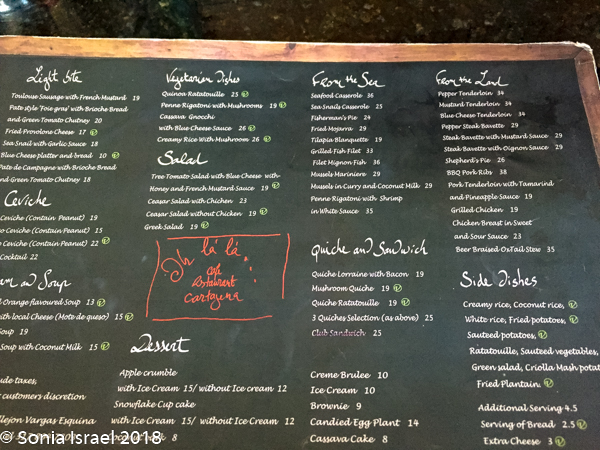 Light bite
Toulouse Sausage with French Mustard 19
Pate style 'Foie gras' with Brioche Bread
and Green Tomato Chutney 20
Fried Provolone Cheese 17
Sea Snail with Garlic Sauce 18
Blue Cheese platter and bread 10
Pate de Campagne with Brioche Bread
and Green Tomato Chutney 18
Ceviche
Ceviche (Contain Peanut) 19
Ceviche (Contain Peanut) 15
Ceviche (Contain Peanut) 22
Cocktail 22
Soup
Orange flavoured Soup 13
with local Cheese (Mote de queso) 15
Soup 19
Soup with Coconut Milk 15
taxes,
customers discretion
Callejon Vargas Esquina
Vegetarian Dishes
Quinoa Ratatouille 25
Penne Rigatoni with Mushrooms 19
Cassava Gnocchi
with Blue Cheese Sauce 26
Creamy Rice With Mushroom 26
Salad
Tree Tomato Salad with Blue Cheese with
Honey and French Mustard Sauce 19
Ceasar Salad with Chicken 23
Ceasar Salad without Chicken 19
Greek Salad 19
Oh là là
Café
Restaurant
Cartagena
Dessert
Apple crumble
with Ice Cream 15/ without Ice cream 12
Snowflake Cup cake
with Ice Cream 15/ without Ice cream 12
8
From the Sea
Seafood Casserole 36
Sea Snails Casserole 25
Fisherman's Pie 24
Fried Mojarra 29
Tilapia Blanquette 29
Grilled Fish Filet 33
Filet Mignon Fish 36
Mussels Mariniere 29
Mussels in Curry and Coconut Milk 29
Penne Rigatoni with Shrimp
in White Sauce 35
Quiche and Sandwich
Quiche Lorraine with Bacon 19
Mushroom Quiche 19
Quiche Ratatouille 19
3 Quiches Selection (as above) 25
Club Sandwich 25
Creme Brulee 10
Ice Cream 10
Brownie 9
Candied Egg Plant 14
Cassava Cake 8
From the Land
Pepper Tenderloin 34
Mustard Tenderloin 34
Blue Cheese Tenderloin 34
Pepper Steak Bavette 29
Steak Bavette with Mustard Sauce 29
Steak Bavette with Oignon Sauce 29
Shepherd's Pie 26
BBQ Pork Ribs 38
Pork Tenderloin with Tamarind
and Pineapple Sauce 19
Grilled Chicken 19
Chicken Breast in Sweet
and Sour Sauce 23
Beer Braised OxTail Stew 35
Side Dishes
Creamy rice, Coconut rice,
White rice, Fried potatoes,
Sauteed potatoes,
Ratatouille, Sauteed vegetables,
Green salad, Criolla Mash potato
Fried Plantain.
Additional Serving 4.5
Serving of Bread 2.5
Extra Cheese 3
© Sonia Israel 2018